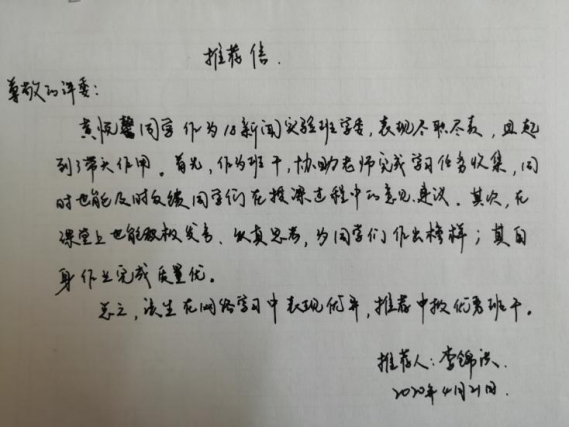 推荐信.
尊敬的评委：
黄悦馨同学作为18新闻实验班学委，表现尽职尽责，且起
到了带头作用。首先，作为班干，协助老师完成学习任务收集，同
时也能及时反馈同学们在授课过程中的意见、建议。其次，在
课堂上也能积极发言、认真思考，为同学们作出榜样；其自
身作业完成质量优。
总之，该生在网络学习中表现优异，推荐申报优秀班干。
推荐人：李锦
2020年4月21日.